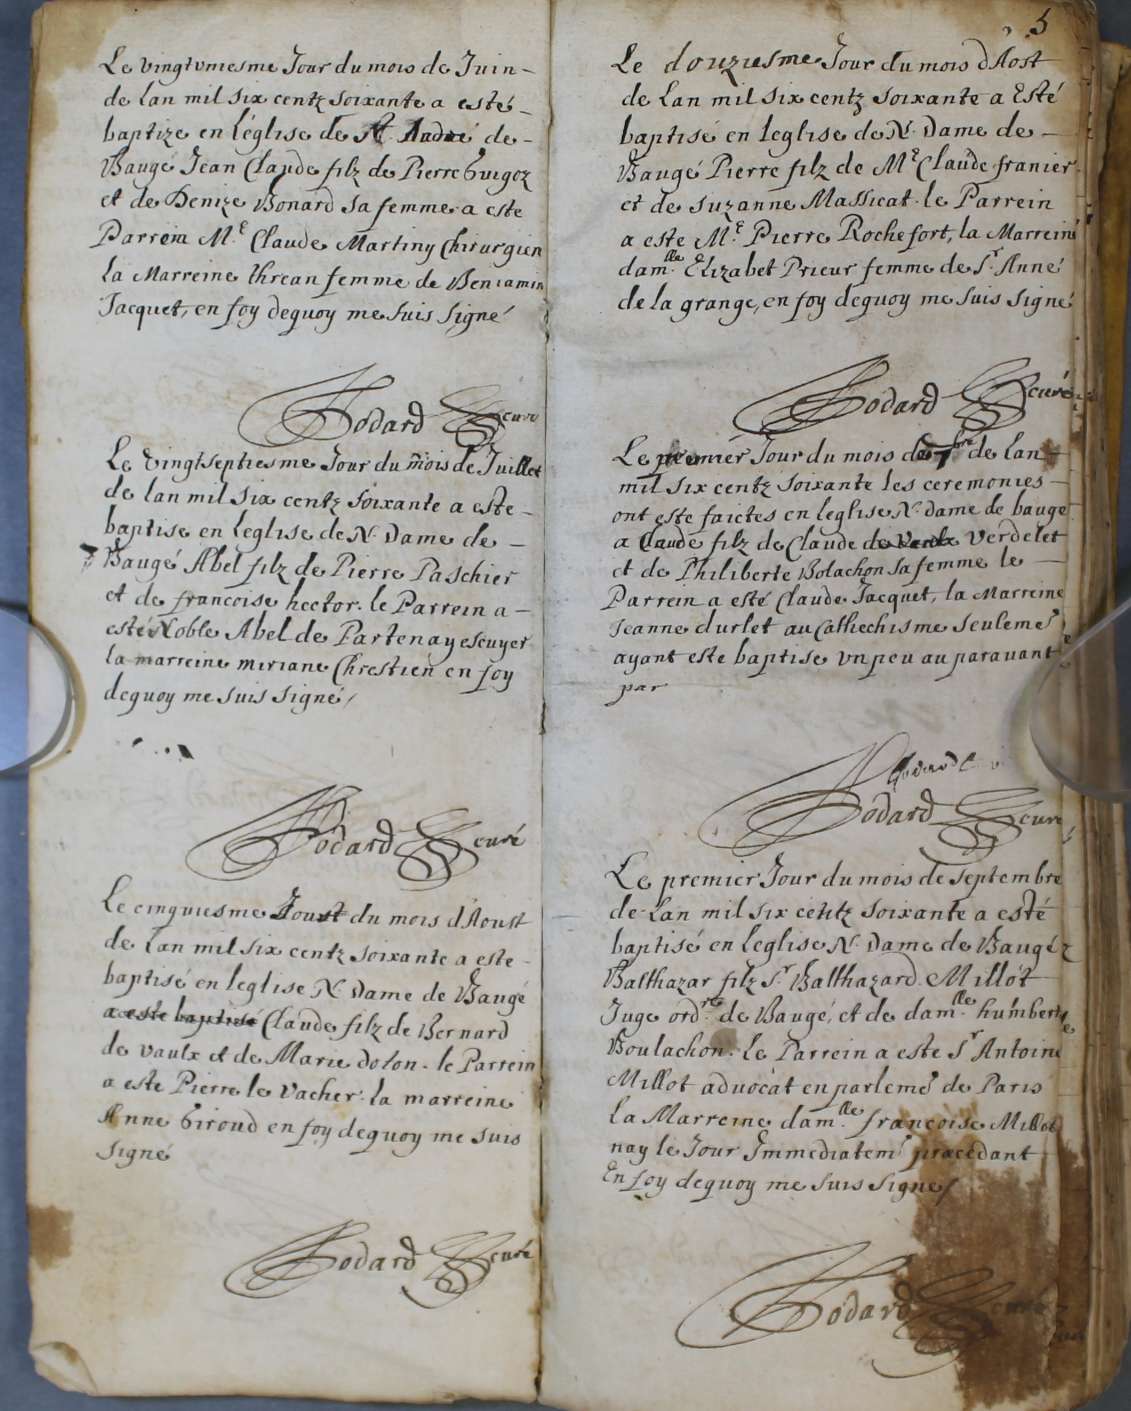 Le vingtvniesme Jour du mois de Juin -
de lan mil six centz soixante a esté -
baptize en léglise de St. André de -
Baugé Jean Claude filz de Pierre Guigoz
et de Denize Bonard sa femme a este
Parrein M.e Claude Martiny Chirurgien
la Marreine threan femme de Beniamin
Jacquet, en foy dequoy me suis signé
Bodard curé
Le vingtseptiesme Jour du mois de Juillet
de lan mil six centz soixante a este -
baptise en leglise de N. Dame de -
Baugé Abel filz de Pierre Paschier
et de francoise hector. le Parrein a -
esté Noble Abel de Partenay escuyer
la marreine miriane Chrestien en foy
dequoy me suis signé /
Bodard curé
Le cinquiesme Jour du mois d'Aoust
de lan mil six centz soixante a este -
baptisé en leglise N. Dame de Baugé
a este baptisé Claude filz de Bernard
de vaulx et de Marie doton. le Parrein
a este Pierre le vacher. la marreine
Anne Giroud en foy dequoy me suis
signé
Bodard curé
5
Le douziesme Jour du mois dAost
de Lan mil six centz soixante a Esté
baptisé en leglise de N. Dame de -
Baugé Pierre filz de M.e Claude franier
et de suzanne Massicat. le Parrein
a este M.e Pierre Rochefort, la Marreine
dam.lle Elizabet Prieur femme de Sr. Anné
de la grange, en foy dequoy me suis signé
Bodard curé
Le premiér Jour du mois de 7bre de lan -
mil six centz soixante les ceremonies -
ont este faictes en leglise N. dame de bauge
a Claude filz de Claude de vaulx verdelet
et de Philiberte Bolachon sa femme le -
Parrein a esté Claude Jacquet, la Marreine
Jeanne durlet au Cathechisme seulemt
ayant este baptise vn peu auparavant
par
Bodard curé
Le premier Jour du mois de septembre
de Lan mil six centz soixante a esté
baptisé en leglise N. Dame de Baugé
Balthazar filz Sr. Balthazard Millot
Juge ord.re de Baugé, et de dam.lle humberte
Boulachon. le Parrein a este Sr Antoine
Millot aduocat en parlemt de Paris
la Marreine dam.lle francoise Millot
nay le Jour Immediatemt precedant
En foy dequoy me suis signe /
Bodard curé